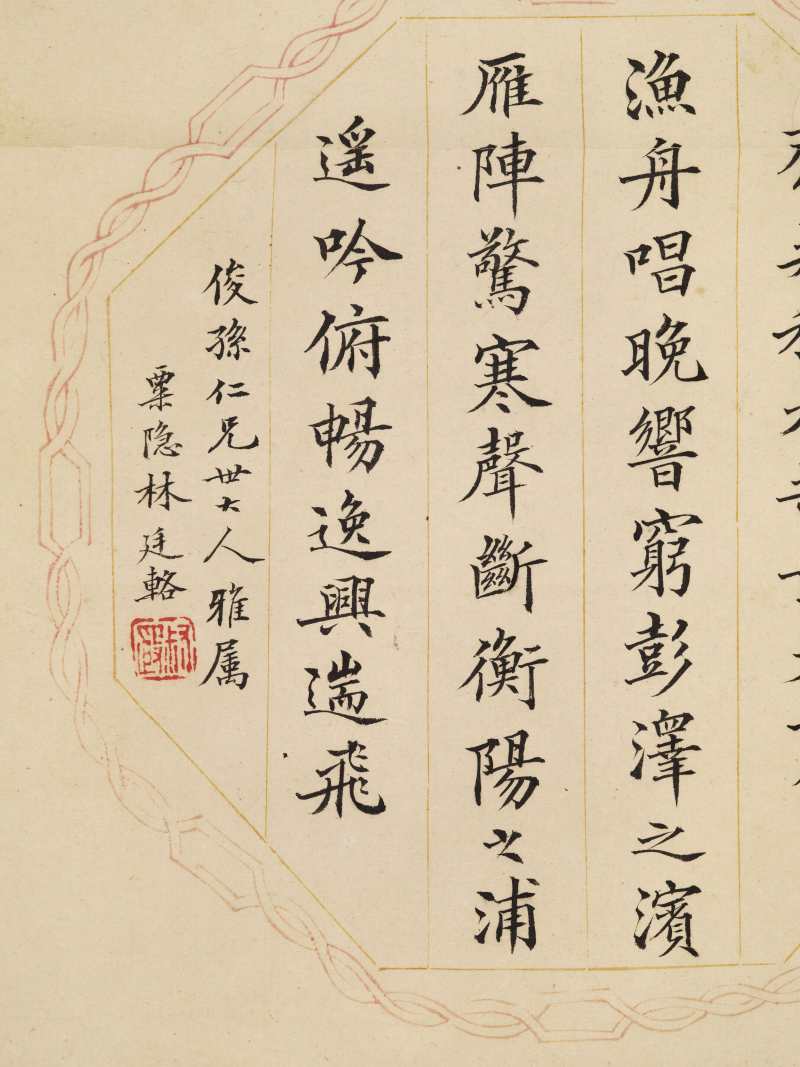 漁舟唱晚響窮彭澤之濱
雁陣驚寒聲斷衡陽之浦
遥吟俯暢逸興遄飛
俊孫仁兄世大人雅属
粟隐林廷輅